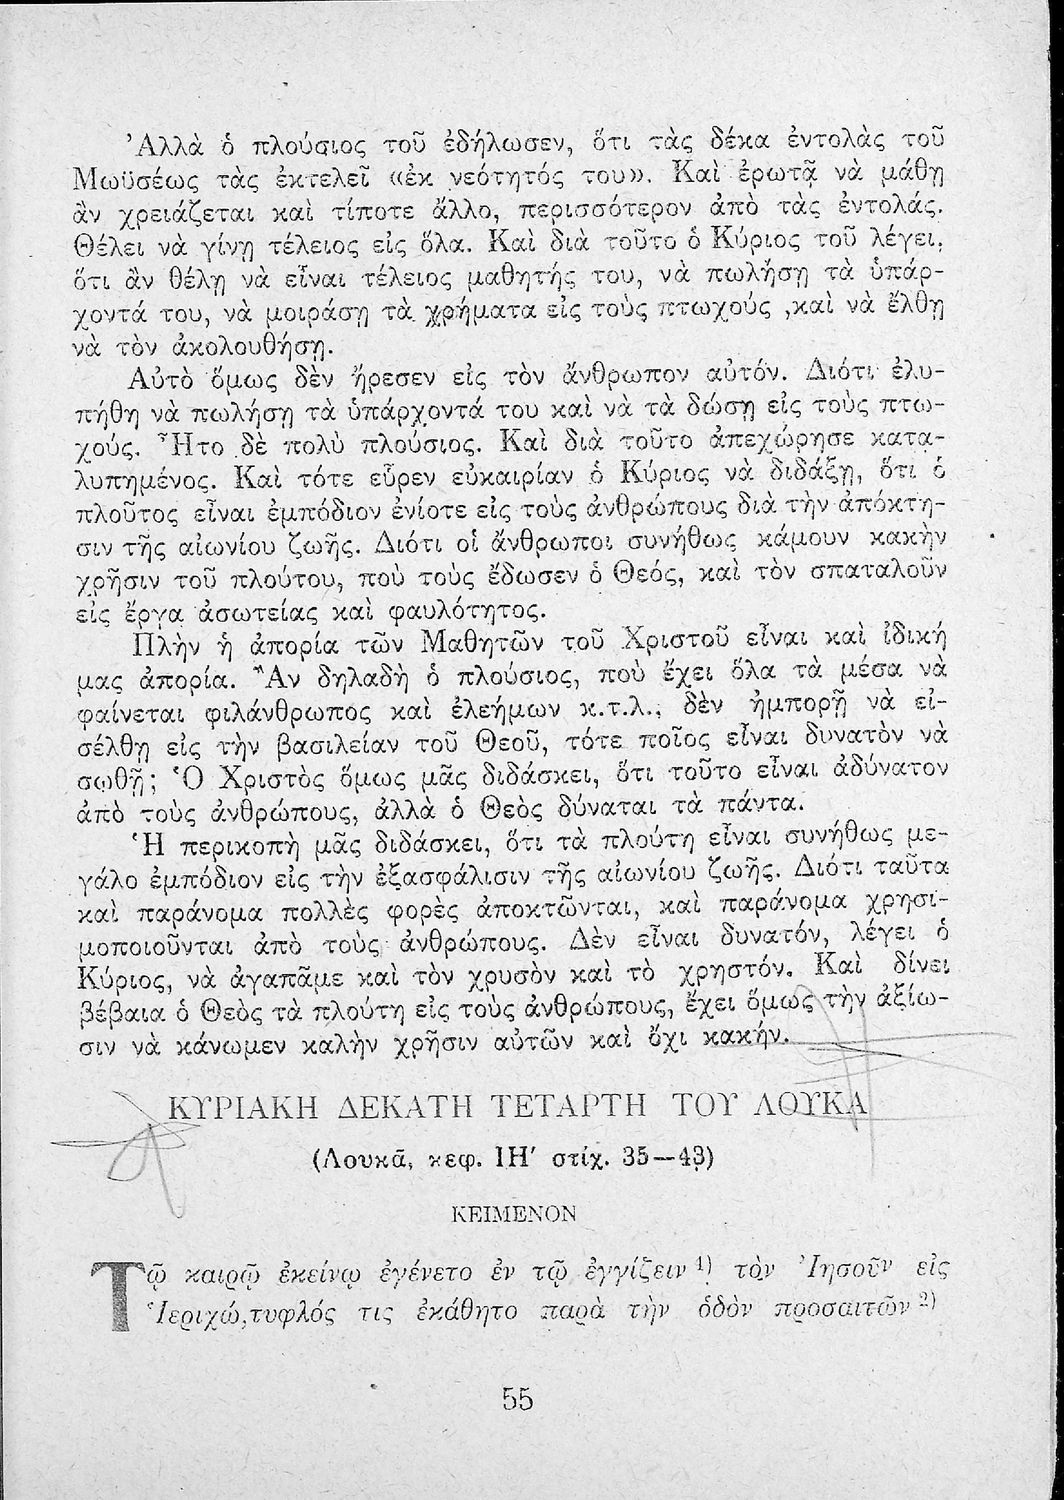 Ἀλλὰ ὁ πλούσιος τοῦ ἐδήλωσεν, ὅτι τὰς δέκα ἐντολὰς τοῦ
Μωϋσέως τὰς ἐκτελεῖ «ἐκ νεότητός του». Καὶ ἐρωτᾷ νὰ μάθῃ
ἂν χρειάζεται καὶ τίποτε ἄλλο, περισσότερον ἀπὸ τὰς ἐντολάς.
Θέλει νὰ γίνῃ τέλειος εἰς ὅλα. Καὶ διὰ τοῦτο ὁ Κύριος τοῦ λέγει,
ὅτι ἂν θέλῃ νὰ εἶναι τέλειος μαθητής του, νὰ πωλήσῃ τὰ ὑπάρ-
χοντά του, νὰ μοιράσῃ τὰ χρήματα εἰς τοὺς πτωχούς ,καὶ νὰ ἔλθῃ
νὰ τὸν ἀκολουθήσῃ.
Αὐτὸ ὅμως δὲν ἤρεσεν εἰς τὸν ἄνθρωπον αὐτόν. Διότι ἐλυ-
πήθη νὰ πωλήσῃ τὰ ὑπάρχοντά του καὶ νὰ τὰ δώσῃ εἰς τοὺς πτω-
χούς. Ἦτο δὲ πολὺ πλούσιος. Καὶ διὰ τοῦτο ἀπεχώρησε κατα-
λυπημένος. Καὶ τότε εὗρεν εὐκαιρίαν ὁ Κύριος νὰ διδάξῃ, ὅτι ὁ
πλοῦτος εἶναι ἐμπόδιον ἐνίοτε εἰς τοὺς ἀνθρώπους διὰ τὴν ἀπόκτη-
σιν τῆς αἰωνίου ζωῆς. Διότι οἱ ἄνθρωποι συνήθως κάμουν κακὴν
χρῆσιν τοῦ πλούτου, ποὺ τοὺς ἔδωσεν ὁ Θεός, καὶ τὸν σπαταλοῦν
εἰς ἔργα ἀσωτείας καὶ φαυλότητος.
Πλὴν ἡ ἀπορία τῶν Μαθητῶν τοῦ Χριστοῦ εἶναι καὶ ἰδική
μας ἀπορία. Ἂν δηλαδὴ ὁ πλούσιος, ποὺ ἔχει ὅλα τὰ μέσα νὰ
φαίνεται φιλάνθρωπος καὶ ἐλεήμων κ.τ.λ., δὲν ἠμπορῇ νὰ εἰ-
σέλθῃ εἰς τὴν βασιλείαν τοῦ Θεοῦ, τότε ποῖος εἶναι δυνατὸν νὰ
σωθῇ; Ὁ Χριστὸς ὅμως μᾶς διδάσκει, ὅτι τοῦτο εἶναι ἀδύνατον
ἀπὸ τοὺς ἀνθρώπους, ἀλλὰ ὁ Θεὸς δύναται τὰ πάντα.
Ἡ περικοπὴ μᾶς διδάσκει, ὅτι τὰ πλούτη εἶναι συνήθως με-
γάλο ἐμπόδιον εἰς τὴν ἐξασφάλισιν τῆς αἰωνίου ζωῆς. Διότι ταῦτα
καὶ παράνομα πολλὲς φορὲς ἀποκτῶνται, καὶ παράνομα χρησι-
μοποιοῦνται ἀπὸ τοὺς ἀνθρώπους. Δὲν εἶναι δυνατόν, λέγει ὁ
Κύριος, νὰ ἀγαπᾶμε καὶ τὸν χρυσὸν καὶ τὸ χρηστόν. Καὶ δίνει
βέβαια ὁ Θεὸς τὰ πλούτη εἰς τοὺς ἀνθρώπους, ἔχει ὅμως τὴν ἀξίω-
σιν νὰ κάνωμεν καλὴν χρῆσιν αὐτῶν καὶ ὄχι κακήν.
ΚΥΡΙΑΚΗ ΔΕΚΑΤΗ ΤΕΤΑΡΤΗ ΤΟΥ ΛΟΥΚΑ
(Λουκᾶ, κεφ. ΙΗ' στίχ. 35—43)
ΚΕΙΜΕΝΟΝ
Τῷ καιρῷ ἐκείνῳ ἐγένετο ἐν τῷ ἐγγίζειν 1) τὸν Ἰησοῦν εἰς
Ἱεριχώ,τυφλός τις ἐκάθητο παρὰ τὴν ὁδὸν προσαιτῶν 2)
55